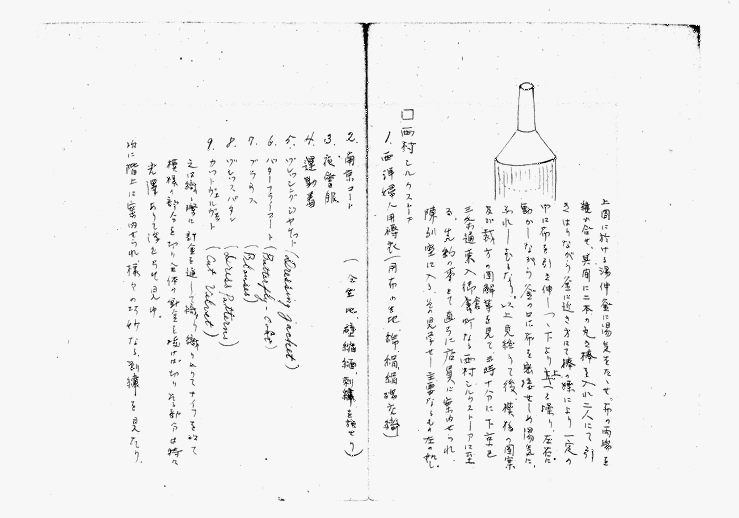 上図に於ける湯伸釜に湯気をたゝせ、布の両端を
縫ひ合せ、其間に二本の丸き棒を入れ二人にて引
きはりながら釜に近き方にて棒の操により一定の
巾に布を引き伸しつゝ下より上へと操り、左右に
動かしながら釜の口に布を密接せしめ湯気に
ふれしむるなり。以上見終りて後、模様の図案
及び裁方の図解等を見て三時十分に下京区
三条通東入御倉町なる西村シルクストーアに至
る。先約の事とて直ちに店員に案内せられ
陳列室に入る。その見学せし主要なるもの左の如し。
□西村シルクストア
1. 西洋婦人用襦衣(用布の生地 綿、絹、絹交織)
2. 南京コート (全生地 壁縮緬、刺繍を施せり)
3. 夜会服
4. 運動着
5. ドレッシングジャケット (Dressing Jacket)
6. バターフライコート (Butterfly-Coat)
7. ブラウス (Blouses)
8. ドレスパタン (Dress Patterns)
9. カットヴェルヴェット (Cut Velvet)
之は織る際に針金を通して織り、織り終りてナイフを以て
模様の部分を切り全体の針金を抜けば切りたる部分は特に
光沢ありて浮き立ちて見ゆ。
次に階上に案内せられ様々の巧妙なる刺繍を見たり。